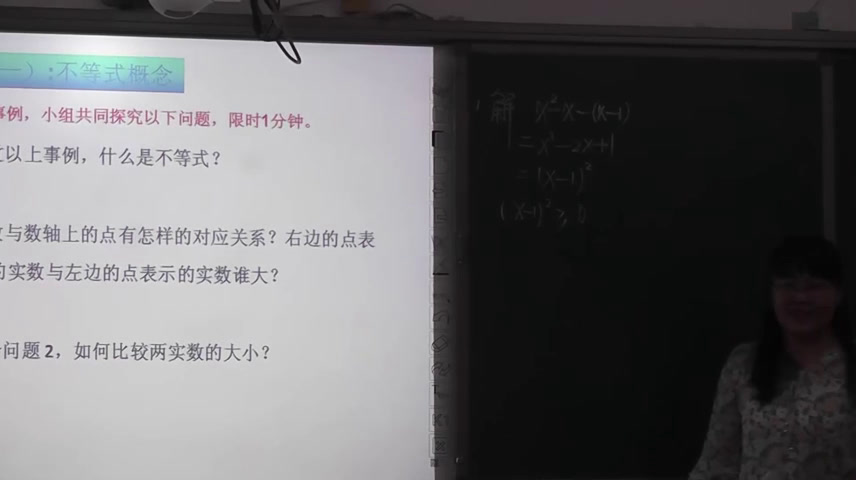 一）:不等式概念
事例，小组共同探究以下问题，限时1分钟。
以上事例，什么是不等式？
与数轴上的点有怎样的对应关系？右边的点表
的实数与左边的点表示的实数谁大？
问题2，如何比较两实数的大小？
解 x²-x-(x-1)
=x²-2x+1
=(x-1)²
(x-1)²≥0